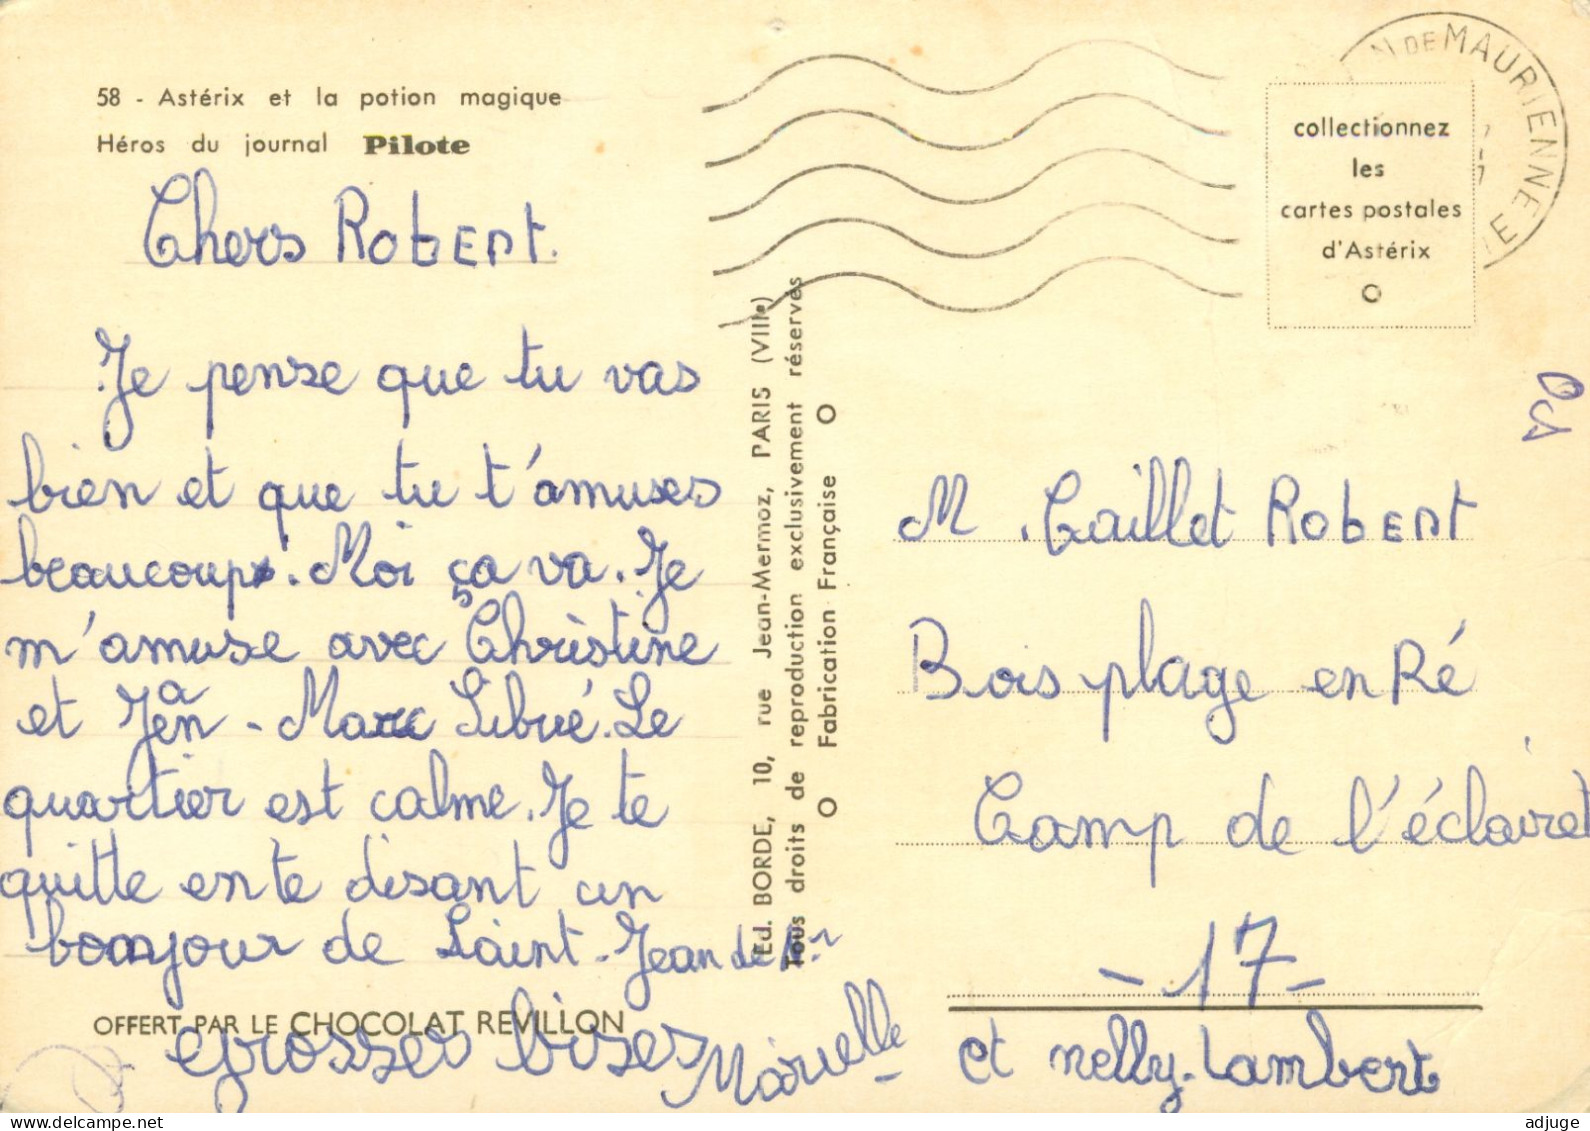 58 - Astérix et la potion magique
Héros du journal Pilote
Chers Robert.
Je pense que tu vas
bien et que tu t'amuses
beaucoup. Moi ça va. Je
m'amuse avec Christine
et Jean-Marc Libué. Le
quartier est calme. Je te
quitte en te disant un
bonjour de Saint-Jean de Mne
OFFERT PAR LE CHOCOLAT REVILLON
grosses bises
et nelly. Lambert
Ed. BORDE, 10, rue Jean-Mermoz, PARIS (VIIIe)
Tous droits de reproduction exclusivement réservés
O Fabrication Française O
N DE MAURIENNE
IE
collectionnez
les
cartes postales
d'Astérix
O
M. Caillet Robert
Bois plage en Ré
Camp de l'éclairet
- 17 -
adjuge